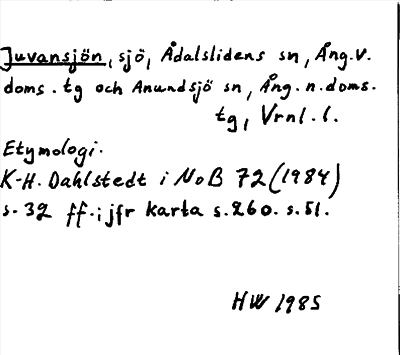 Juvansjön, sjö, Ådalslidens sn, Ång.v.
doms. tg och Anundsjö sn, Ång.n.doms.
tg, Vrnl. l.
Etymologi.
K-H. Dahlstedt i NoB 72 (1984)
s. 32 ff. i jfr karta s. 260. s. 51.
HW 1985